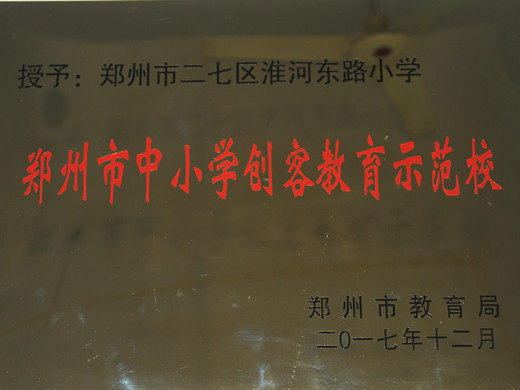 授予：郑州市二七区淮河东路小学
郑州市中小学创客教育示范校
郑州市教育局
二〇一七年十二月